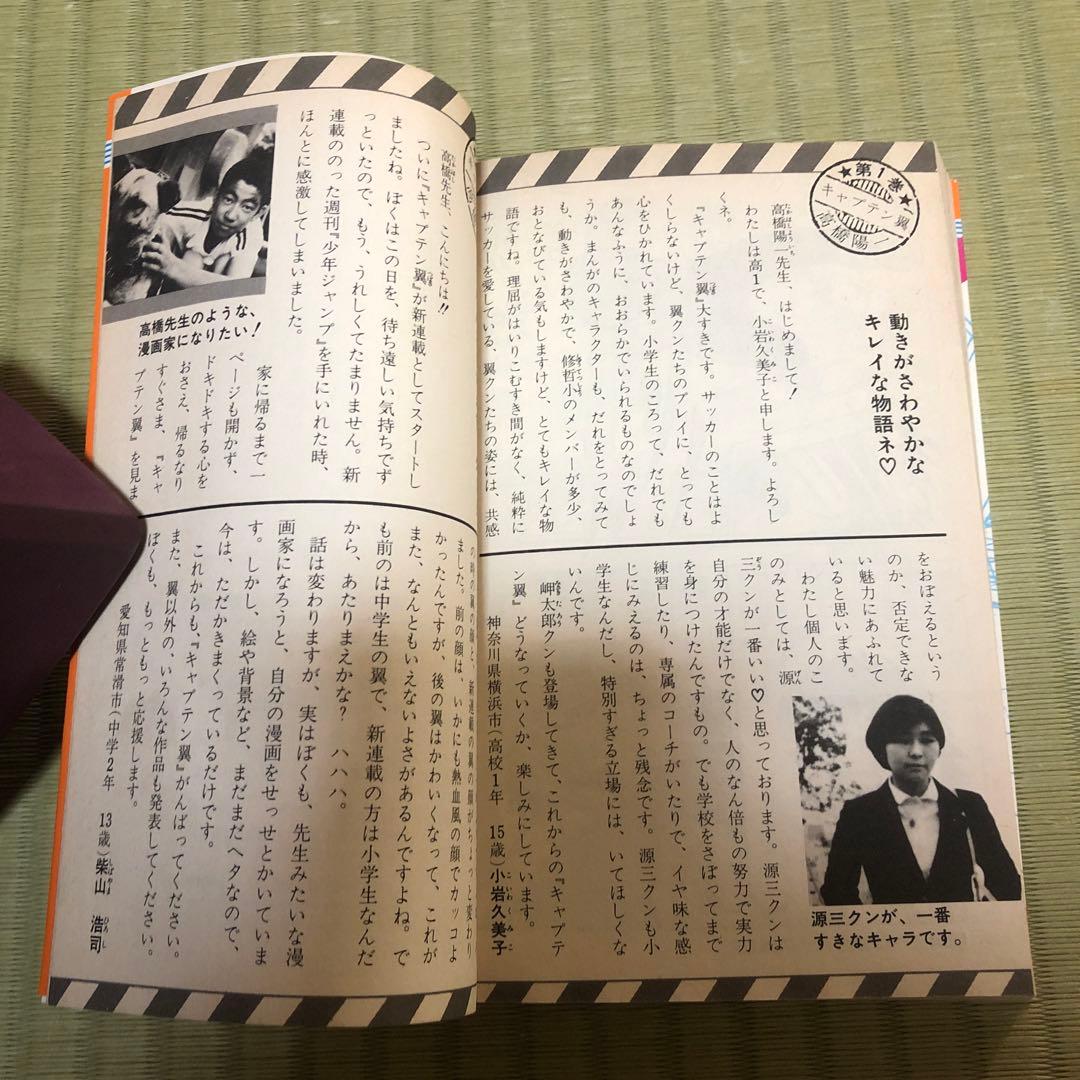 ★第1巻★
キャプテン翼
高橋陽一
動きがさわやかな
キレイな物語ネ♡
高橋陽一先生、はじめまして!
わたしは高1で、小岩久美子と申します。よろし
くネ。
『キャプテン翼』大すきです。サッカーのことはよ
くしらないけど、翼クンたちのプレイに、とっても
心をひかれています。小学生のころって、だれでも
あんなふうに、おおらかでいられるものなのでしょ
うか。まんがのキャラクターも、だれをとってみて
も、動きがさわやかで、修哲小のメンバーが多少、
おとなびている気もしますけど、とてもキレイな物
語ですね。理屈がはいりこむすき間がなく、純粋に
サッカーを愛している、翼クンたちの姿には、共感
をおぼえるという
のか、否定できな
い魅力にあふれて
いると思います。
わたし個人のこ
のみとしては、源
三クンが一番いい♡と思っております。源三クンは
自分の才能だけでなく、人のなん倍もの努力で実力
を身につけたんですもの。でも学校をさぼってまで
練習したり、専属のコーチがいたりで、イヤ味な感
じにみえるのは、ちょっと残念です。源三クンも小
学生なんだし、特別すぎる立場には、いてほしくな
いんです。
岬太郎クンも登場してきて、これからの『キャプテ
ン翼』どうなっていくか、楽しみにしています。
神奈川県横浜市(高校1年 15歳)小岩久美子
源三クンが、一番
すきなキャラです。
高橋先生、こんにちは!!
ついに『キャプテン翼』が新連載としてスタートし
ましたね。ぼくはこの日を、待ち遠しい気持ちでず
っといたので、もう、うれしくてたまりません。新
連載ののった週刊『少年ジャンプ』を手にいれた時、
ほんとに感激してしまいました。
高橋先生のような、
漫画家になりたい!
家に帰るまで一
ページも開かず、
ドキドキする心を
おさえ、帰るなり
すぐさま、『キャ
プテン翼』を見ま
の時の翼の顔と、新連載の翼の顔がちょっと変わり
ました。前の顔は、いかにも熱血風の顔でカッコよ
かったんですが、後の翼はかわいくなって、これが
また、なんともいえないよさがあるんですよね。で
も前のは中学生の翼で、新連載の方は小学生なんだ
から、あたりまえかな? ハハハ。
話は変わりますが、実はぼくも、先生みたいな漫
画家になろうと、自分の漫画をせっせとかいていま
す。しかし、絵や背景など、まだまだヘタなので、
今は、ただかきまくっているだけです。
これからも、『キャプテン翼』がんばってください。
また、翼以外の、いろんな作品も発表してください。
ぼくも、もっともっと応援します。
愛知県常滑市(中学2年 13歳)柴山 浩司